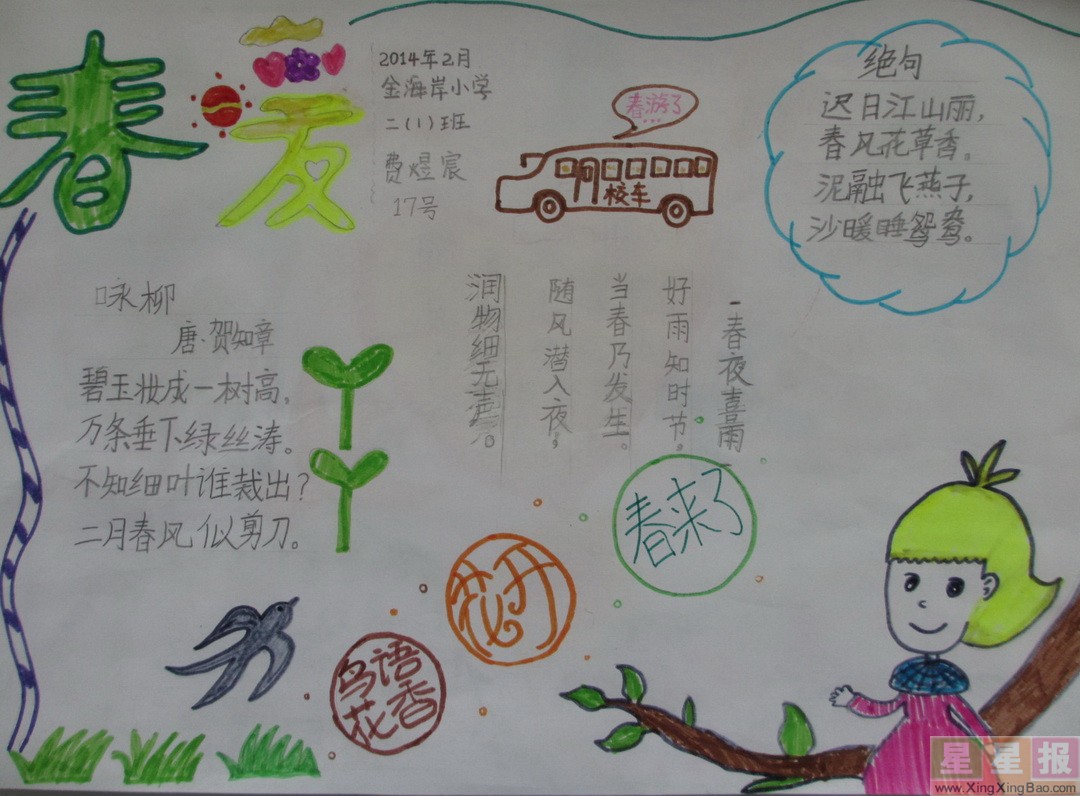 春爱
2014年2月
金海岸小学
二(1)班
费煜宸
17号
春游了
校车
绝句
迟日江山丽,
春风花草香。
泥融飞燕子,
沙暖睡鸳鸯。
咏柳
唐·贺知章
碧玉妆成一树高,
万条垂下绿丝涛。
不知细叶谁裁出?
二月春风似剪刀。
春夜喜雨
好雨知时节。
当春乃发生。
随风潜入夜,
润物细无声。
春来了
花开
鸟语
花香
星星报
www.XingXingBao.com